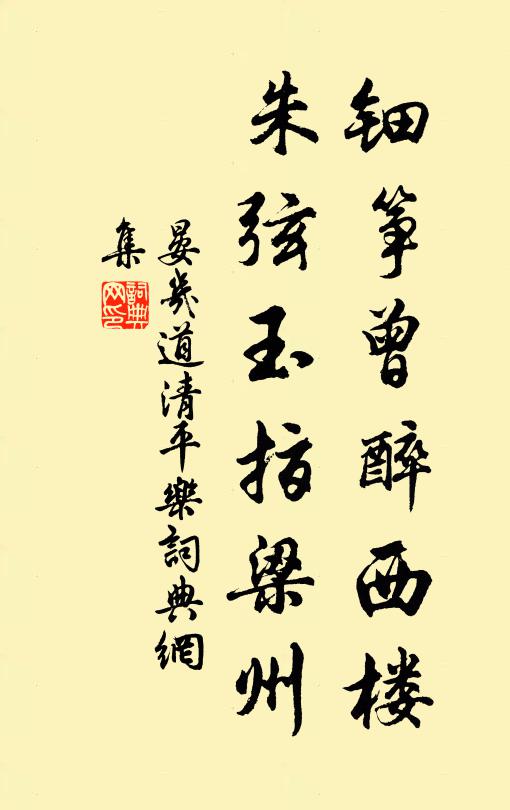 钿筝曾醉西楼
朱弦玉指梁州
晏幾道清平樂詞典網
集
詞典网印